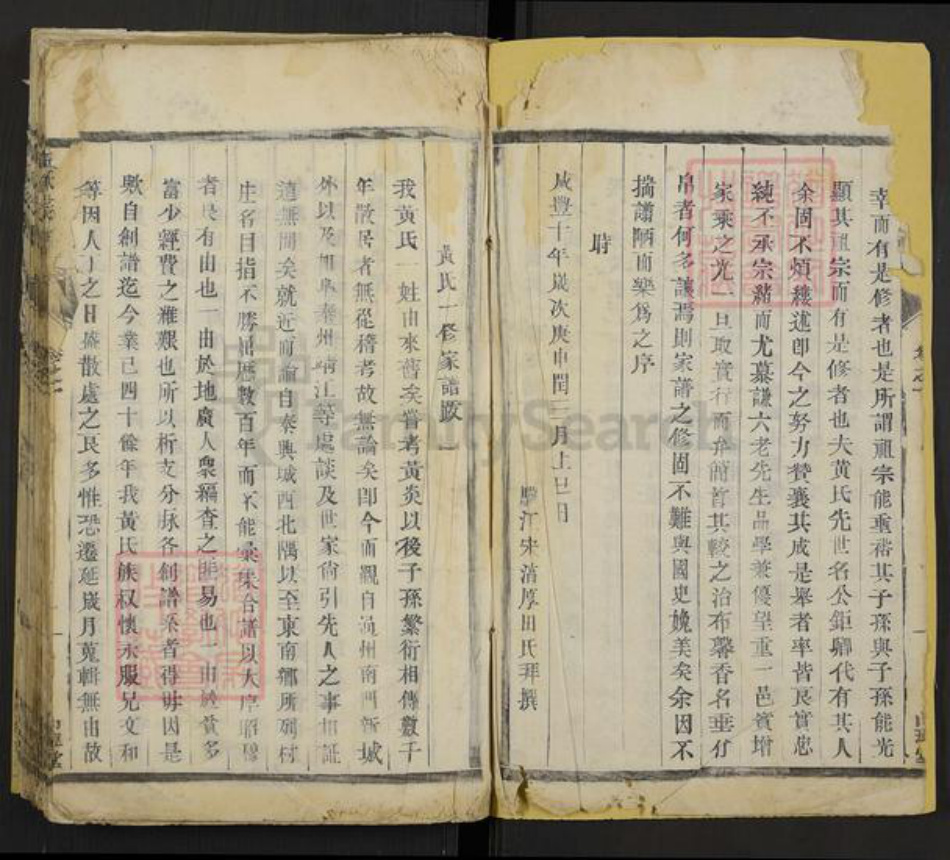 幸而有是修者也是所謂祖宗能重裕其子孫與子孫能光
顯其祖宗而有是修者也夫黃氏先世名公鉅卿代有其人
余固不煩縷述卽今之努力贊襄其成是舉者率皆良實忠
純丕承宗緒而尤慕謙六老先生品學兼優望重一邑實增
家乘之光一旦取實行而弁簡首其較之治布馨香名垂竹
帛者何多讓焉則家譜之修固不難與國史媲美矣余因不
揣譾陋而樂爲之序
時
咸豐十年歲次庚申閏三月上巳日
江宋藹厚田氏拜撰
黃氏一修家譜敘
我黃氏一姓由來舊矣嘗考黃炎以後子孫繁衍相傳數千
年散居者無從稽考故無論矣卽今而觀自通州南門新城
外以及如皋泰州靖江等處談及世家尙引先人之事相証
遠無間矣就近而論自泰興城西北隅以至東南鄉所列村
庄名目指不勝屈歷數百年而不能彙集合譜以大序昭穆
者良有由也一由於地廣人衆稽查之匪易也一由貧多
富少經費之維艱也所以析支分脉各創譜系者得毋因是
歟自創譜迄今業已四十餘年我黃氏族叔懷永服兄文和
等因人丁之日盛散處之良多惟恐遷延歲月蒐輯無由故
FamilySearch